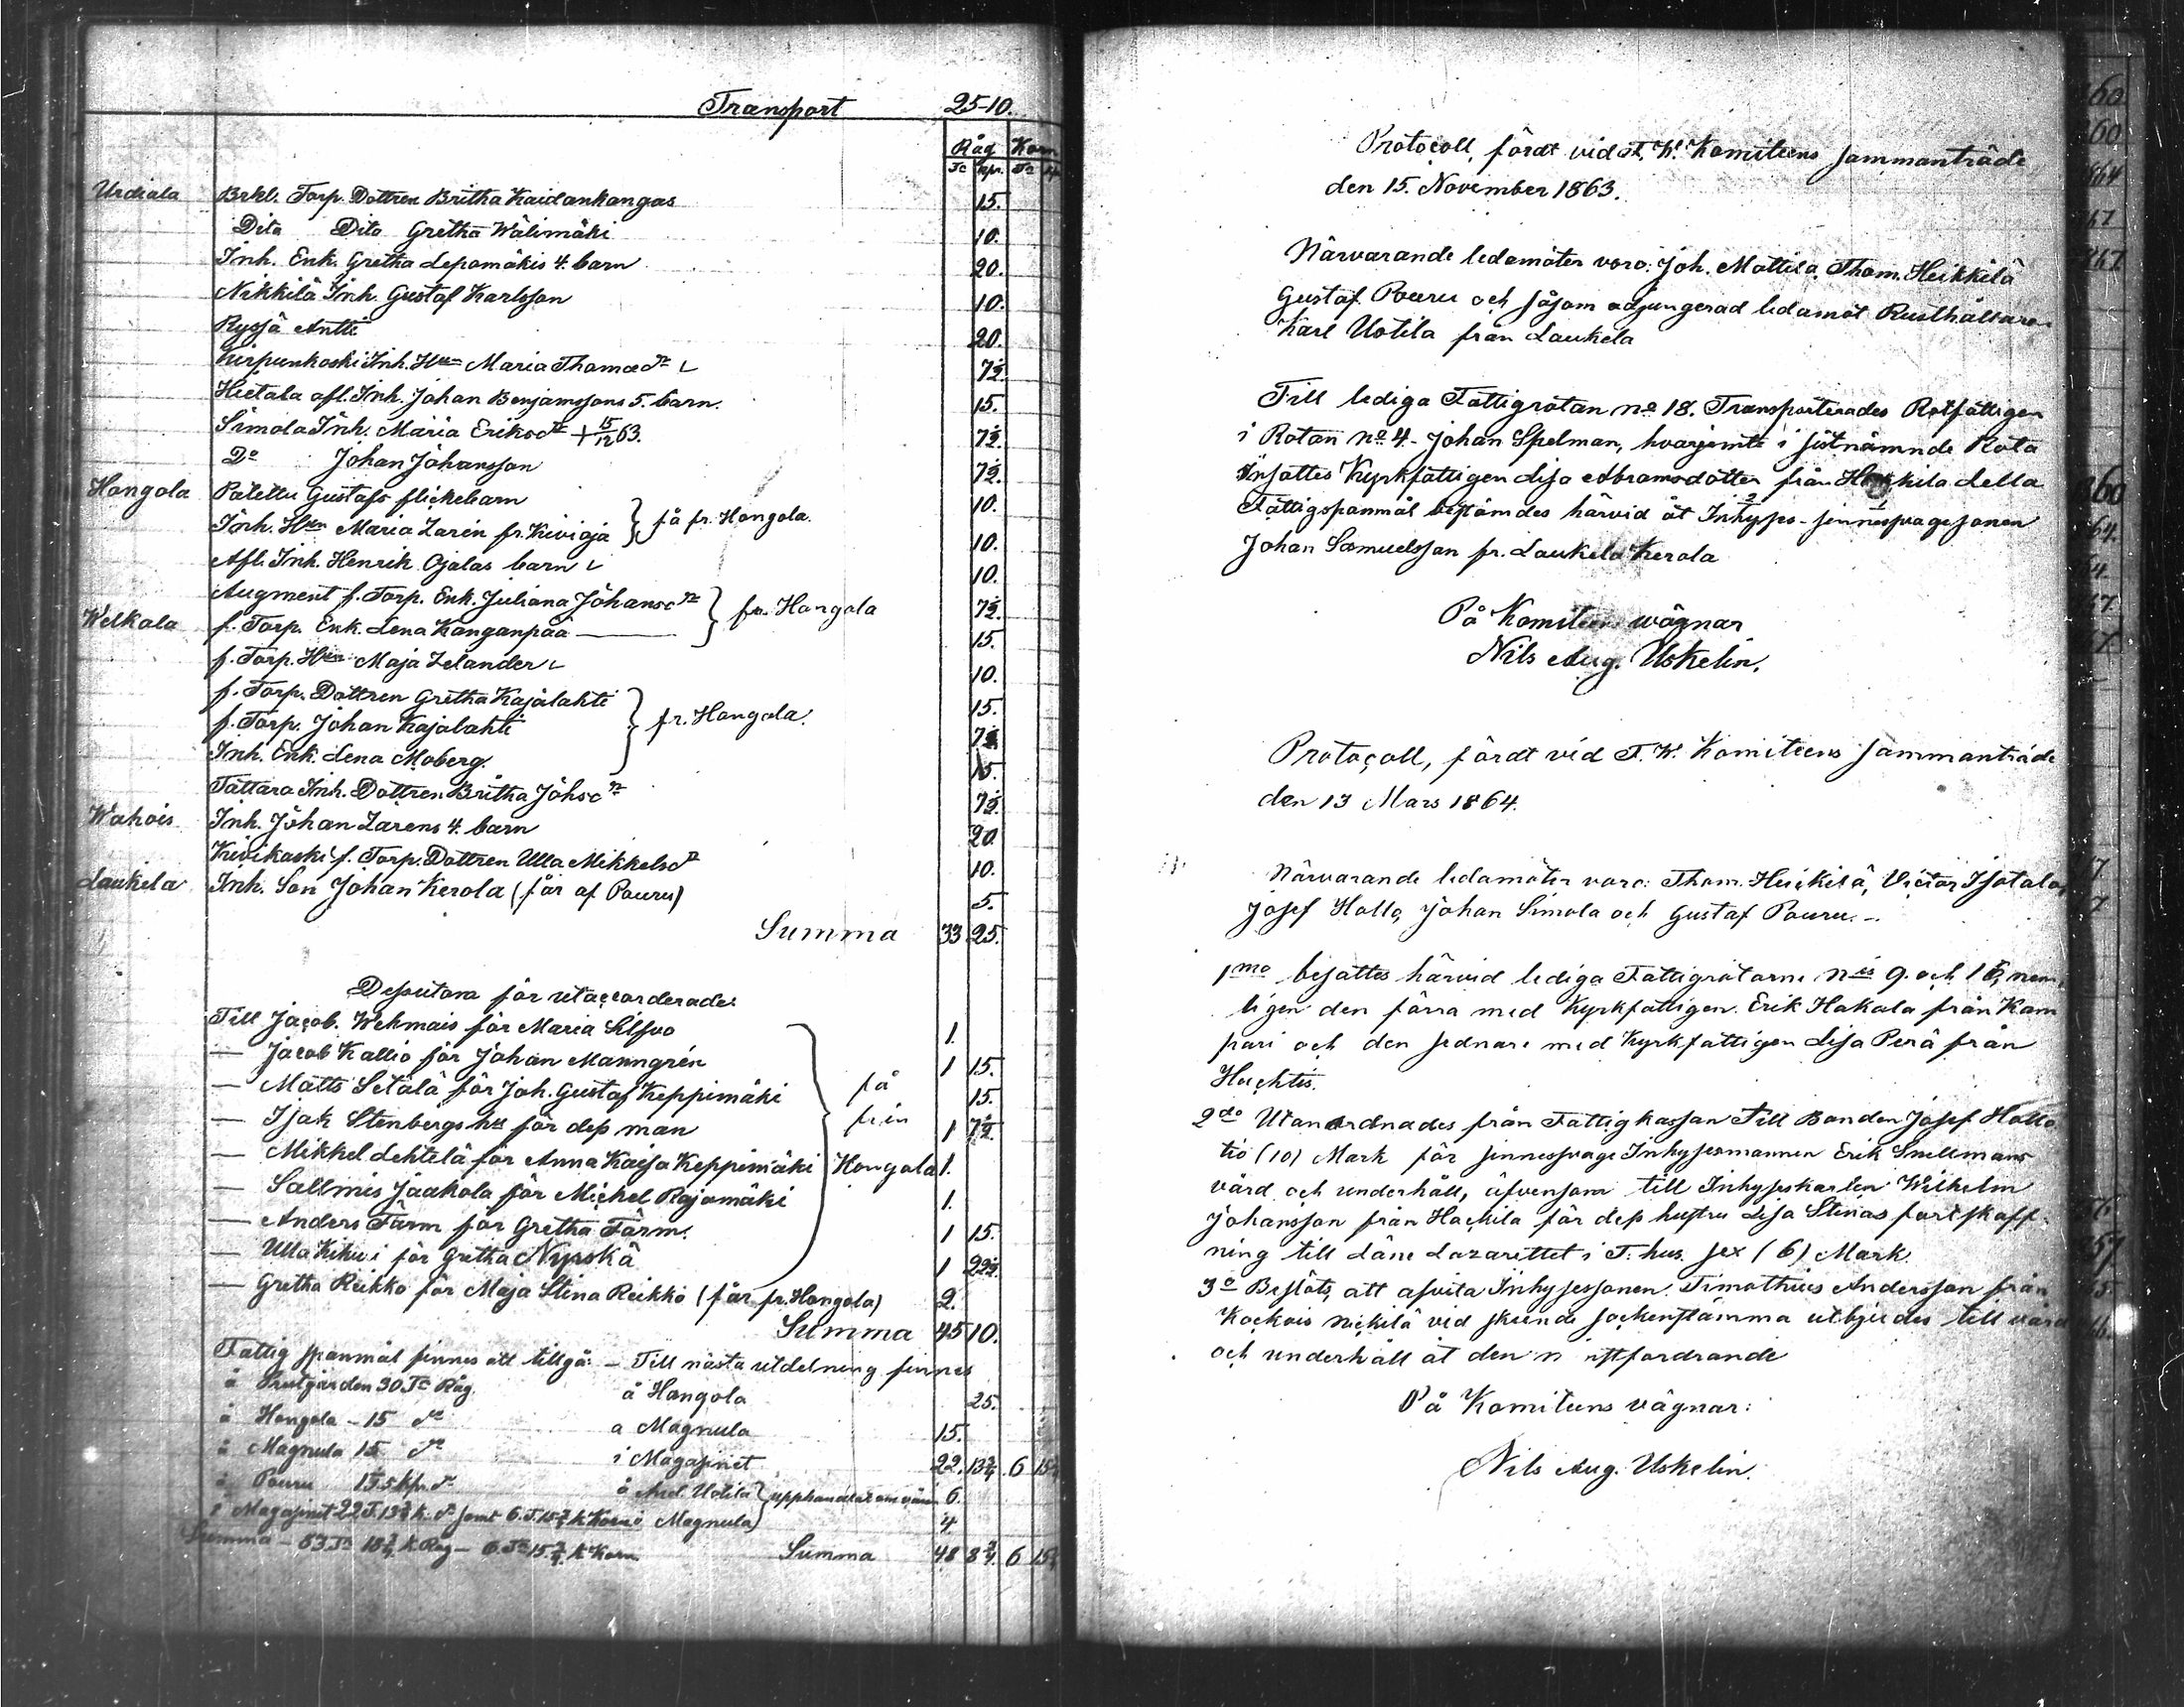 Transport 25-10.
Råg Korn
Tr kpr. Tr
Urdiala Brkl. Torp. Dottren Britha Kaidankangas 15.
Dito Dito Gretha Wälimäki 10.
Inh. Enk. Gretha Lepomäkis 4. barn 20.
Nikkilä Inh. Gustaf Karlsson 10.
Ryssä Antti 20.
Kirpunkoski Inh. Hun Maria Thomasdr 7½.
Hietala afl. Inh. Johan Benjamssons 5. barn. 15.
Simola Inh. Maria Eriksdr + 15/12 63. 7½.
Do Johan Johansson 7½.
Hongola Palettu Gustafs flickebarn 10.
Inh. Hun Maria Zarén fr. Kivioja } få fr. Hongola. 10.
Afl. Inh. Henrik Ojalas barn 10.
Augment f. Torp. Enk. Juliana Johansdr 7½.
Welkala f. Torp. Enk. Lena Kanganpää } fr. Hongola 15.
f. Torp. Hun Maja Zelander 10.
f. Torp. Dottren Gretha Kajalahti 15.
f. Torp. Johan Kajalahti } fr. Hongola. 7½
Inh. Enk. Lena Moberg. 15.
Tattara Inh. Dottren Britha Johsdr 7½.
Wahois Inh. Johan Zarens 4. barn 20.
Kivikoski f. Torp. Dottren Ulla Mikkelsdr 10.
Laukela Inh. Son Johan Kerola (får af Pouru) 5.
Summa 33 25.
Deputera för utaccorderade:
Till Jacob. Wehmais för Maria Silfvo 1.
— Jacob Kallio för Johan Manngrén 1 15.
— Matts Setälä för Joh. Gustaf Keppimäki få 15.
— Isak Stenbergs hu för dess man från 1 7½.
— Mikkel Lehtelä för Anna Kaisa Keppimäki Hongola 1.
— Sallmis Jaakola för Michel Rajamäki 1.
— Anders Färm för Gretha Färm. 1 15.
— Ulla Kikui för Gretha Nyrskä 1 22½.
— Gretha Reikko för Maja Stina Reikko (får fr. Hongola) 2.
Summa 45 10.
Fattig spanmål finnes att tillgå: – Till nästa utdelning finnes
å Prestgården 30 Tr Råg å Hongola 25.
å Hongola – 15 dr å Magnula 15.
å Magnula 15 dr i Magasinet 22. 13¾ 6 15¾
å Pouru 1 T. 5 kpr. dr å And. Uotila } 6.
i Magasinet 22 T. 13¾ k. dr samt 6 T. 15¾ k Korn Magnula } 4
Summa – 83 Tr 18¾ k Råg – 6 Tr 15¾ k Korn Summa 48 8¾ 6 15¾
Protocoll, fördt vid F. W. Komiteens sammanträde
den 15. November 1863.
Närvarande ledamöter voro: Joh. Mattila, Thom. Heikkilä
Gustaf Pouru och såsom adjungerad ledamot Rusthållaren
Karl Uotila från Laukela
Till lediga Fattigrotan No 18. Transporterades Rotfattigen
i Rotan No 4. Johan Spelman, hvarjemte i sistnämnde Rota
insattes Kyrkfattigen Lisa Abramsdotter från Hakkila Lella
Fattigspanmål bestämdes härvid åt Inhyses-sinnessvage sonen
Johan Samuelsson fr. Laukela Kerola
På Komiteens wägnar
Nils Aug. Uskelin.
Protocoll, fördt vid F. W. Komiteens sammanträde
den 13 Mars 1864.
Närvarande ledamöter voro: Thom. Heikkilä, Victor Isotalo,
Josef Hollo, Johan Simola och Gustaf Pouru.–
1mo besattes härvid lediga Fattigrotarne Nis 9. och 15, nem
ligen den förra med Kyrkfattigen Erik Hakala från Kam
pari och den sednare med Kyrkfattigen Lisa Perä från
Huchtis.
2do Utanordnades från Fattigkassan till Bonden Josef Hollo
tio (10) Mark för sinnessvage Inhysesmannen Erik Snellmans
vård och underhåll, äfvensom till Inhyseskarlen Wilhelm
Johansson från Hackila för dess hustru Lisa Stinas fortskaff-
ning till Läne Lazarettet i T: hus sex (6) Mark.
3o Beslöts, att afvita Inhysessonen Timothius Andersson från
Kockois Nickilä vid skeende sockenstämma utbjudes till vård
och underhåll åt den minstfordrande
På Komiteens vägnar:
Nils Aug. Uskelin.